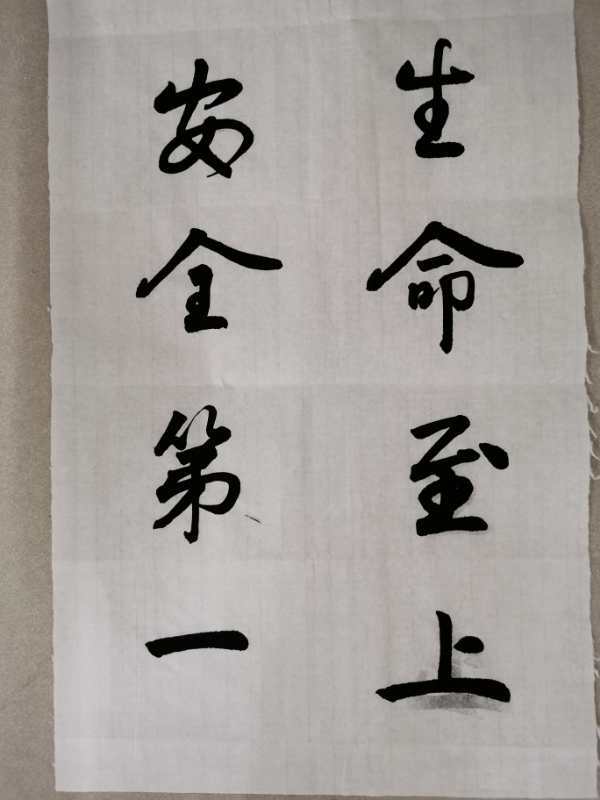 生命至上
安全第一